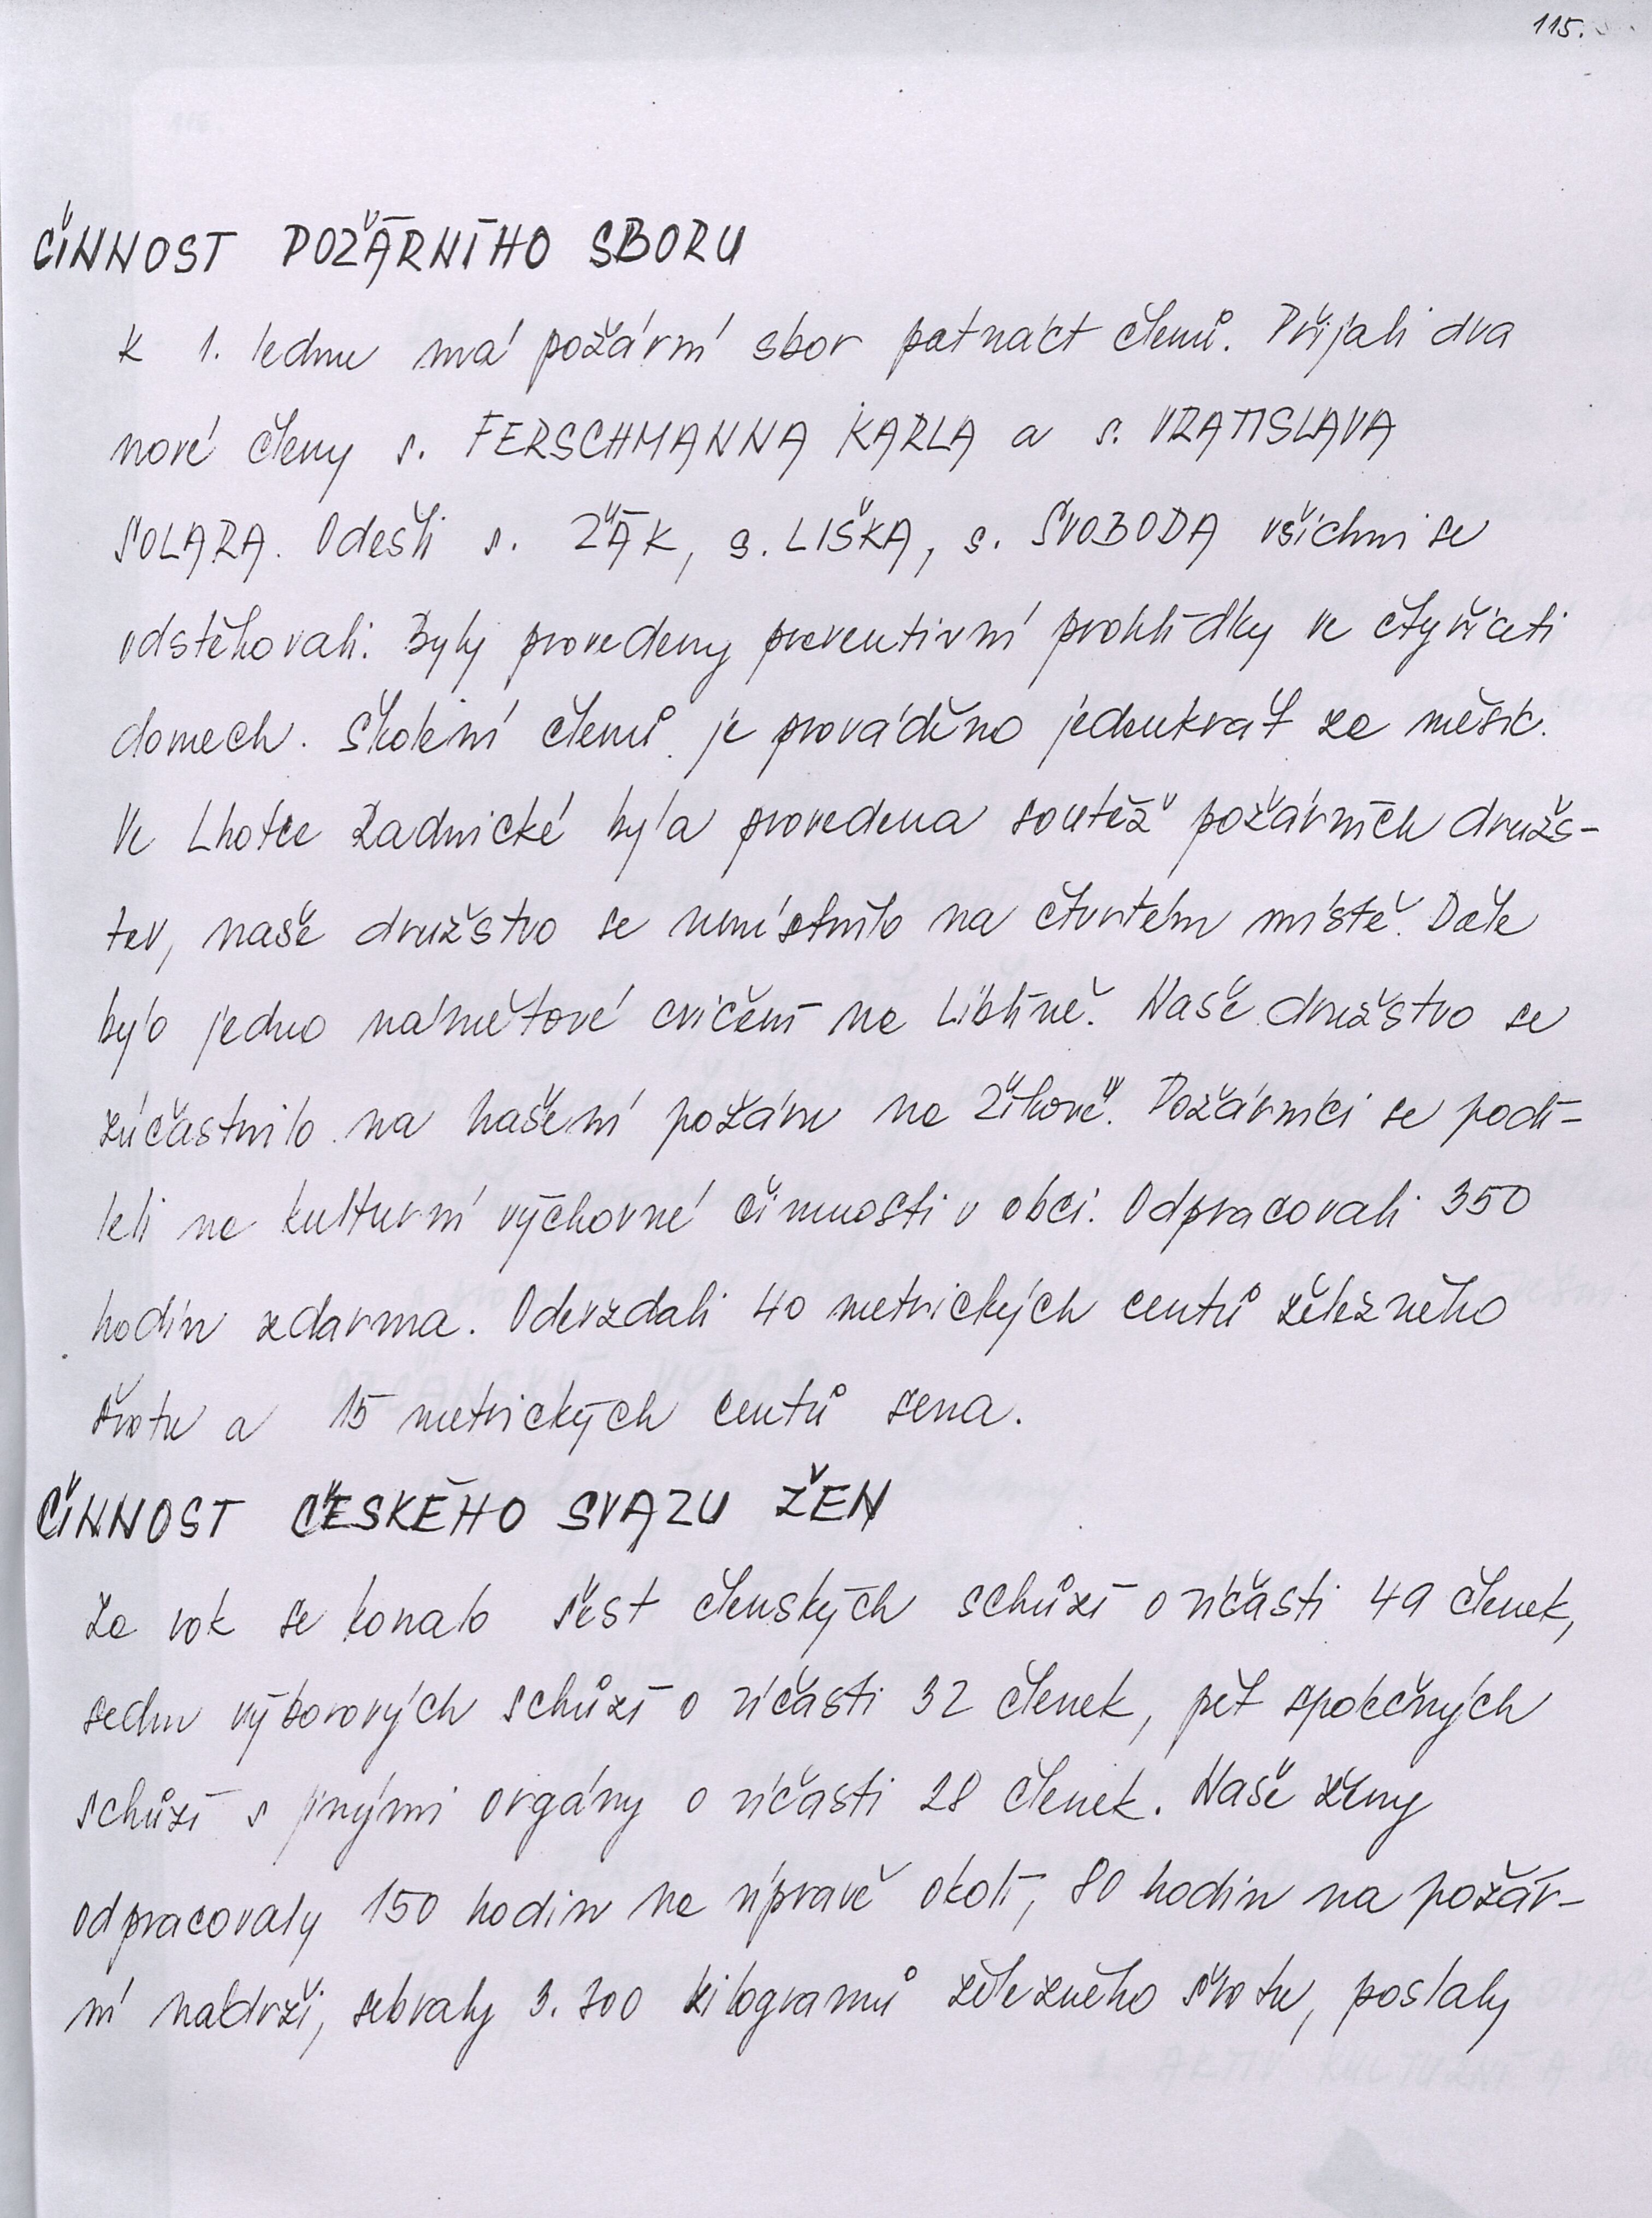 115.
ČINNOST POŽÁRNÍHO SBORU
K 1. lednu má požární sbor patnáct členů. Přijali dva
nové členy s. FERSCHMANNA KARLA a s. VRATISLAVA
ŠOLARA. Odešli s. ŽÁK, s. LIŠKA, s. SVOBODA všichni se
odstěhovali. Byly provedeny preventivní prohlídky ve čtyřiceti
domech. Školení členů je prováděno jedenkrát za měsíc.
Ve Lhotce Radnické byla provedena soutěž požárních družs-
tev, naše družstvo se umístnilo na čtvrtém místě. Dále
bylo jedno námětové cvičení na Libštině. Naše družstvo se
zúčastnilo na hašení požáru na Žikově. Požárníci se podí-
leli na kulturní výchovné činnosti v obci. Odpracovali 350
hodin zdarma. Odevzdali 40 metrických centů železného
šrotu a 15 metrických centů sena.
ČINNOST ČESKÉHO SVAZU ŽEN
Za rok se konalo šest členských schůzí o účasti 49 členek,
sedm výborových schůzí o účasti 32 členek, pět společných
schůzí s jinými orgány o účasti 28 členek. Naše ženy
odpracovaly 150 hodin na úpravě okolí, 80 hodin na požár-
ní nádrži, sebraly 3.700 kilogramů železného šrotu, poslaly